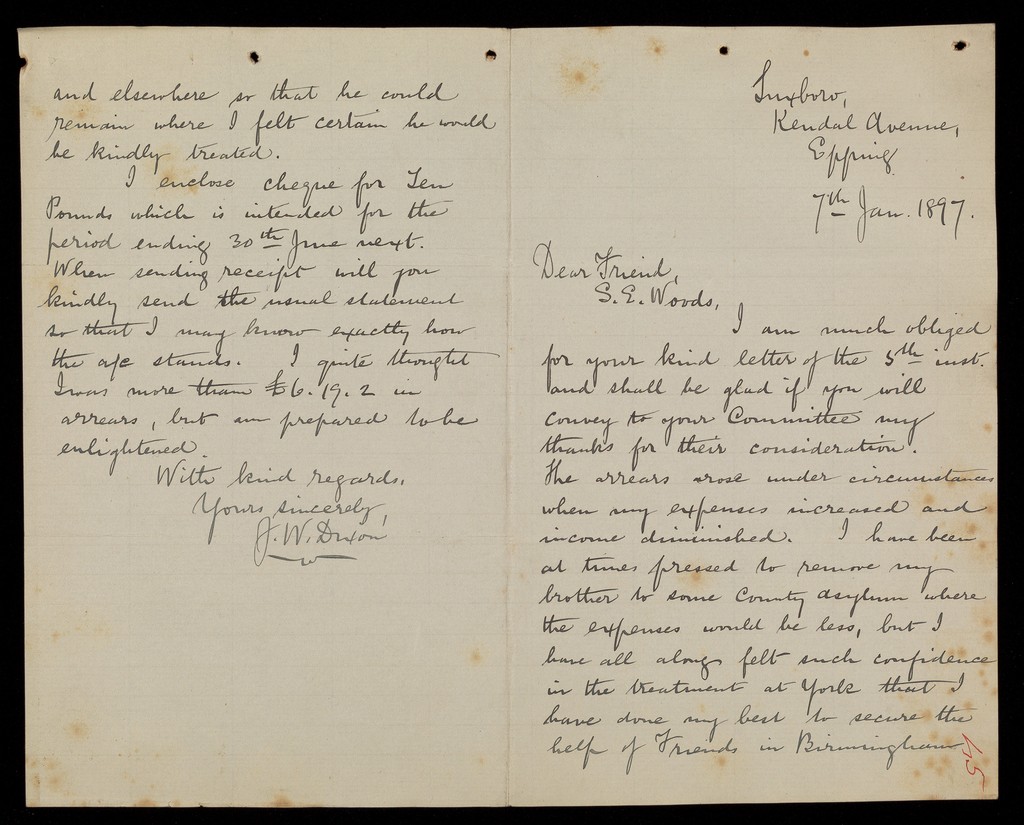 Luxboro,
Kendal Avenue,
Epping
7th Jan. 1897.
Dear Friend,
S. E. Woods,
I am much obliged
for your kind letter of the 5th inst.
and shall be glad if you will
convey to your Committee my
thanks for their consideration.
The arrears arose under circumstances
when my expenses increased and
income diminished. I have been
at times pressed to remove my
brother to some County asylum where
the expenses would be less, but I
have all along felt such confidence
in the treatment at York that I
have done my best to secure the
help of Friends in Birmingham
45
and elsewhere so that he could
remain where I felt certain he would
be kindly treated.
I enclose cheque for Ten
Pounds which is intended for the
period ending 30th June next.
When sending receipt will you
kindly send the usual statement
so that I may know exactly how
the a/c stands. I quite thought
I was more than £6.19.2 in
arrears, but am prepared to be
enlightened.
With kind regards,
Yours sincerely,
J. W. Dixon